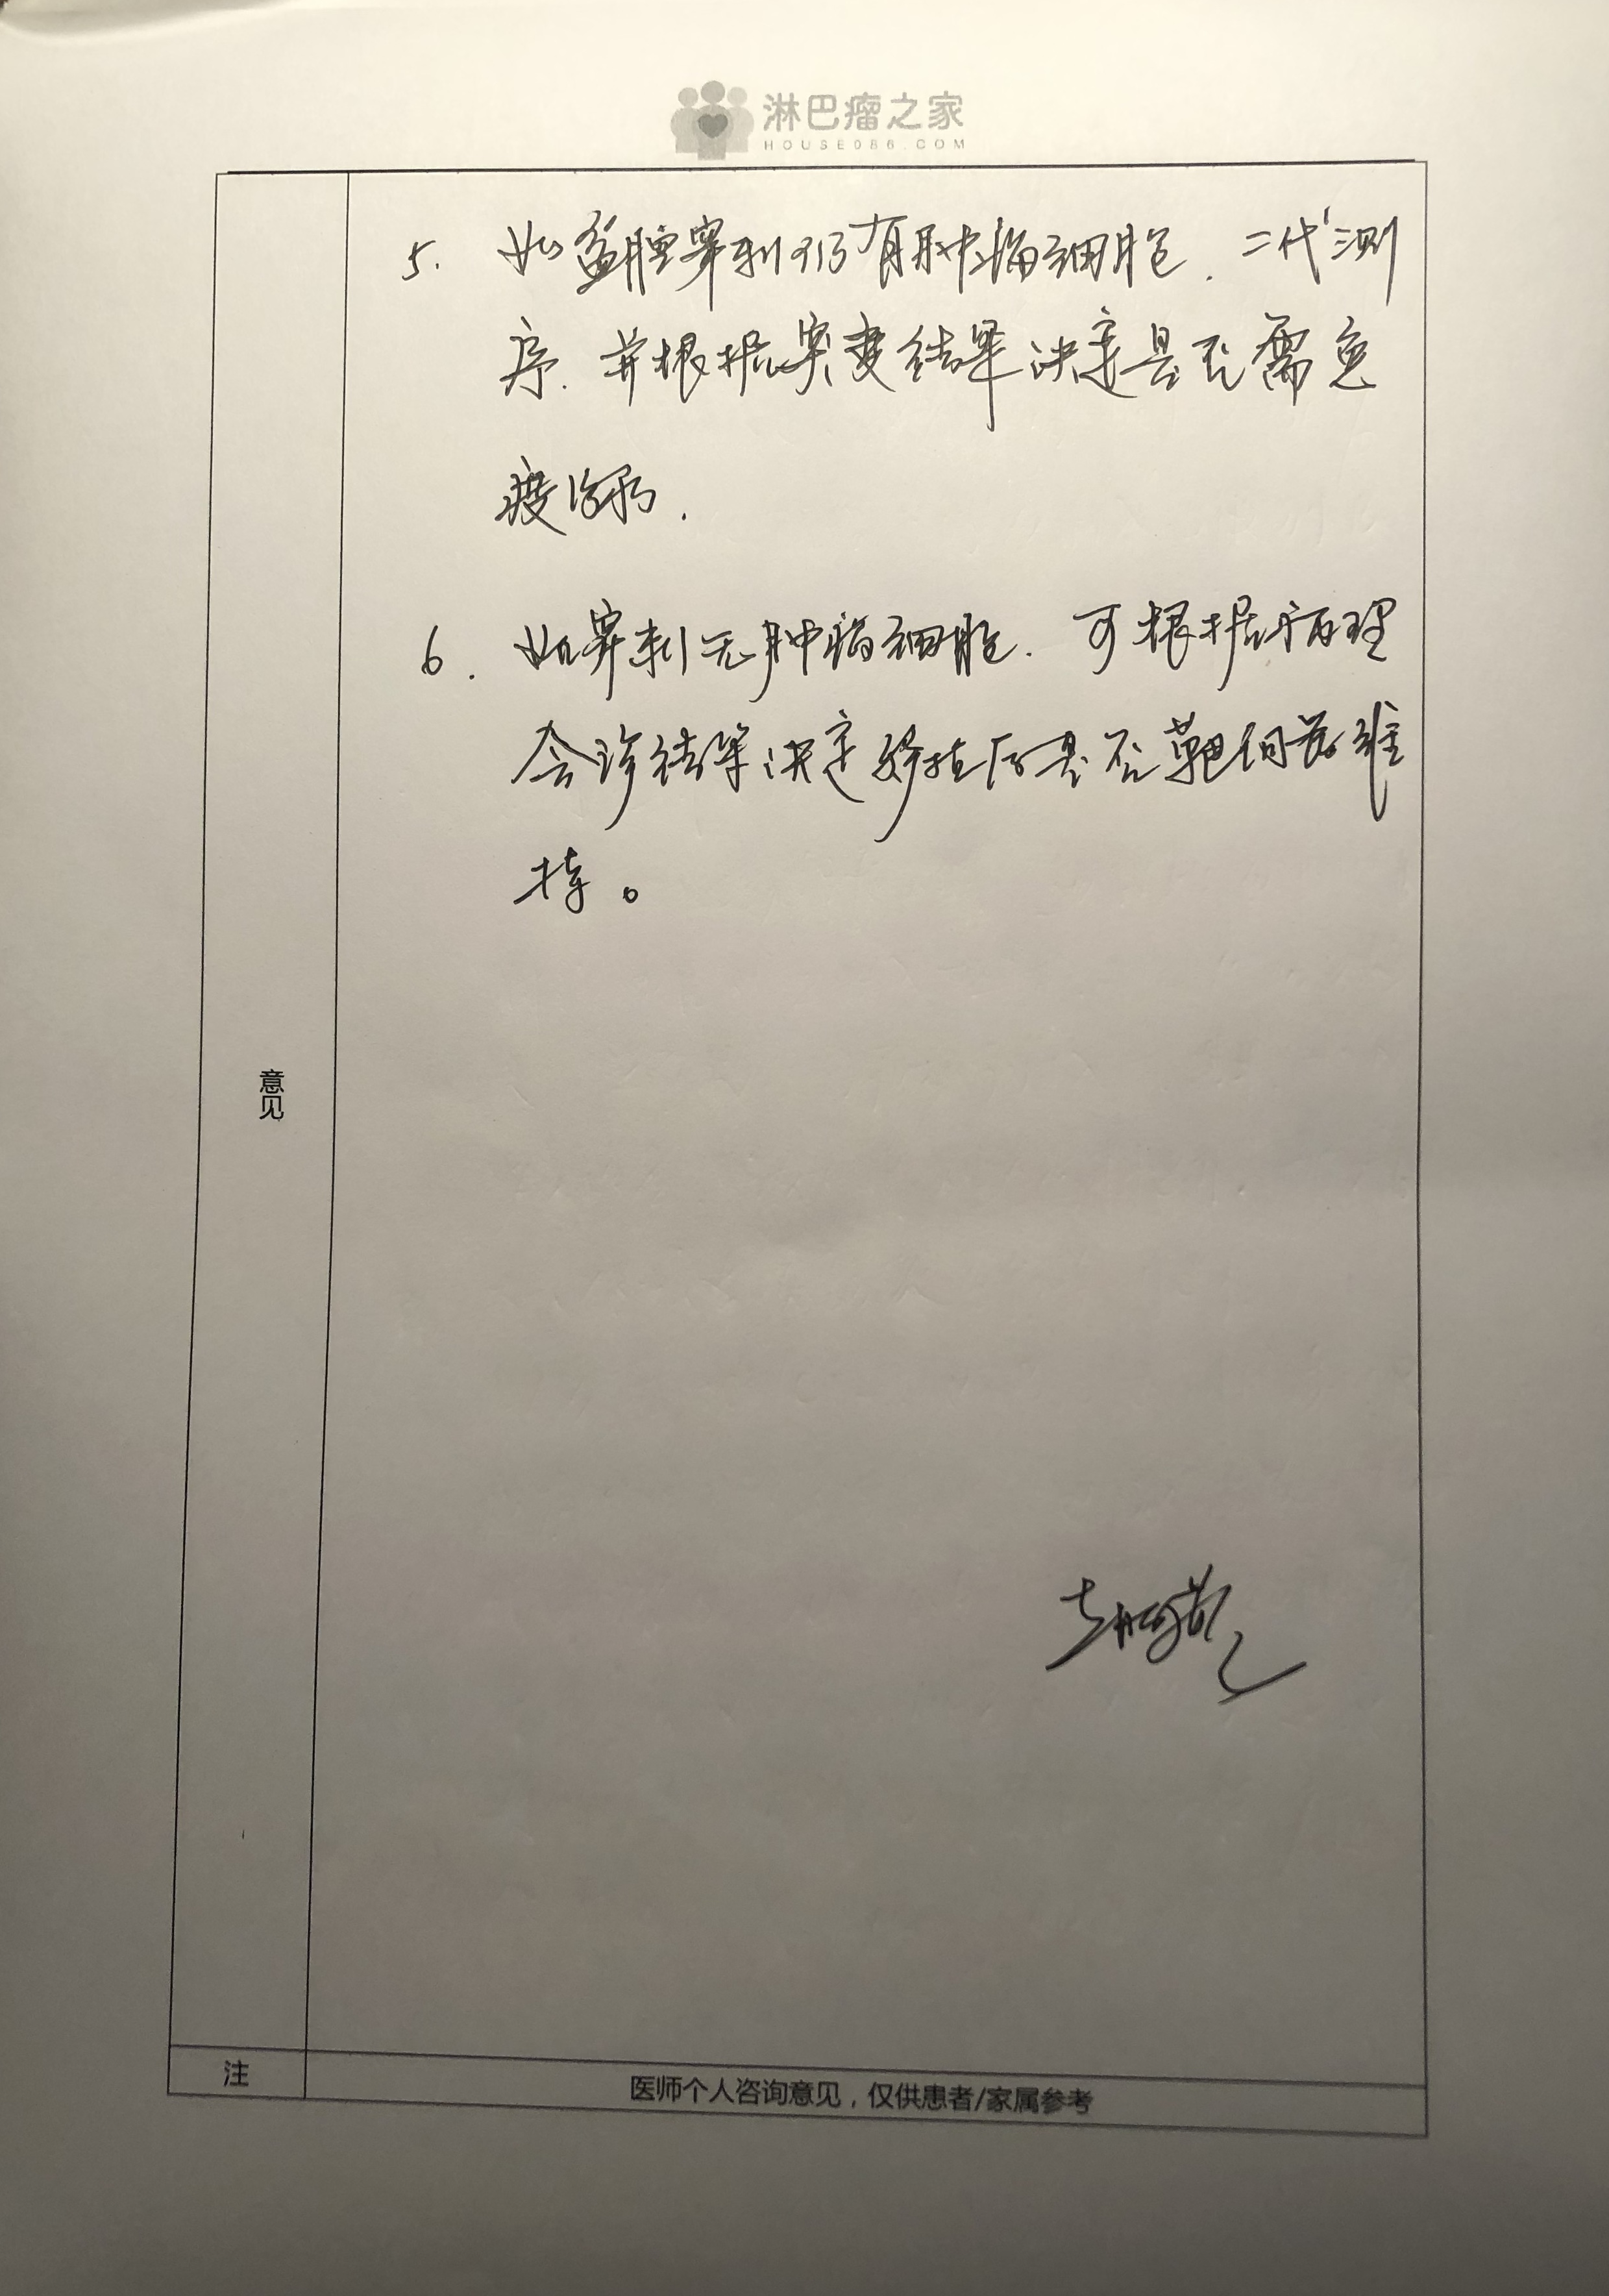 淋巴瘤之家
HOUSE086.COM
5. 如盆腔穿刺仍有肿瘤细胞. 二代测
序. 并根据突变结果决定是否需免
疫治疗.
6. 如穿刺无肿瘤细胞. 可根据病理
会诊结果决定移植后是否靶向药维
持。
意见
注
医师个人咨询意见，仅供患者/家属参考